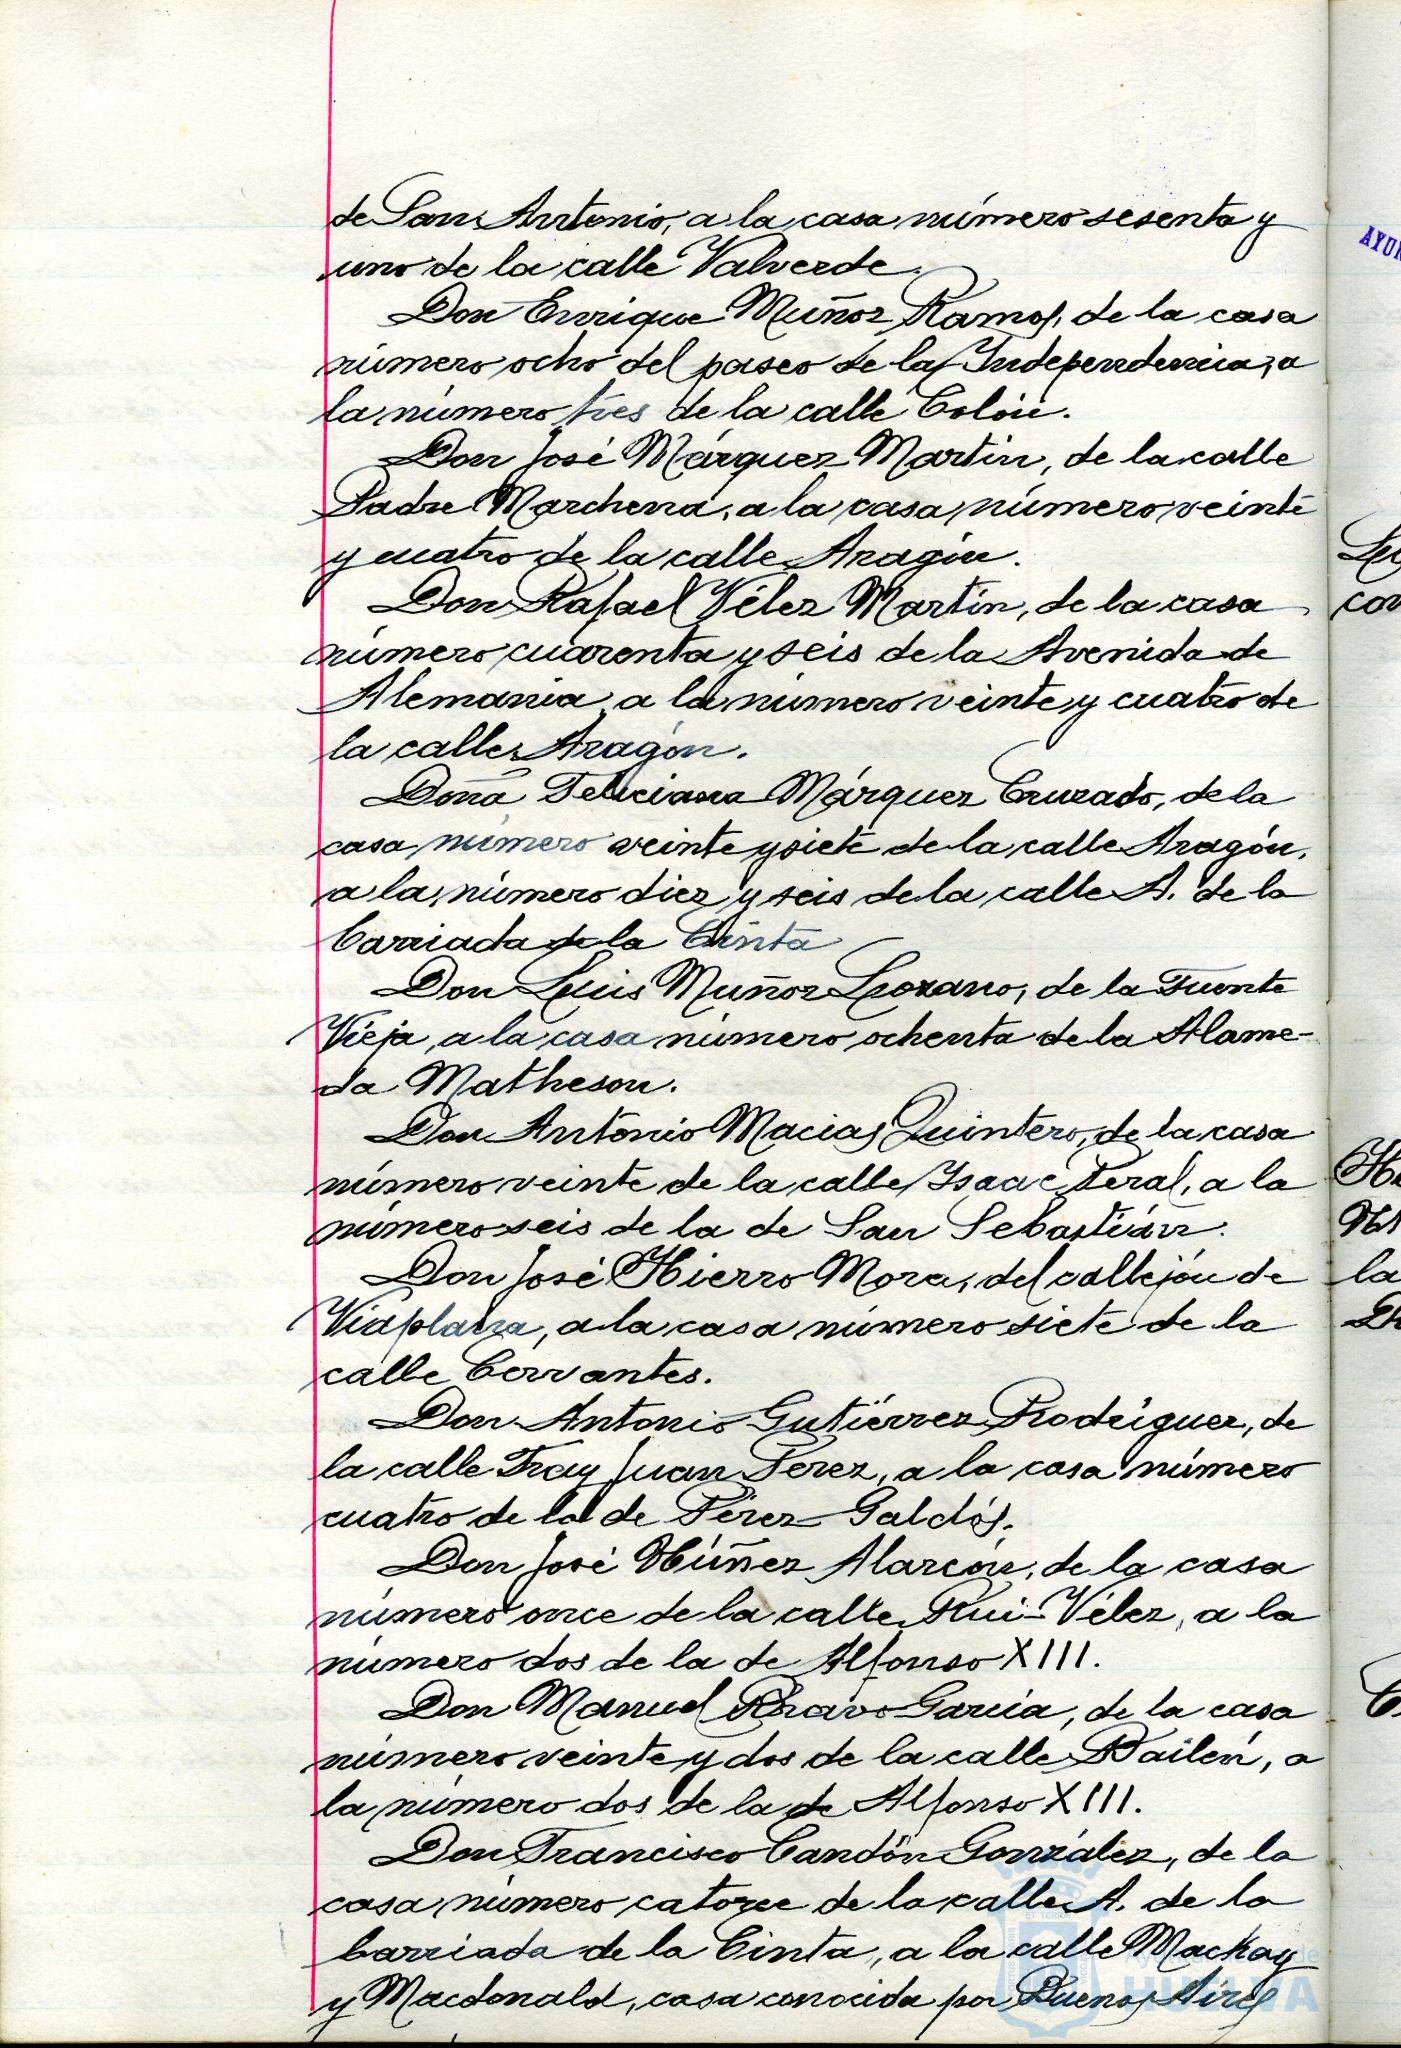 de San Antonio, a la casa número sesenta y
uno de la calle Valverde.
Don Enrique Muñoz Ramos, de la casa
número ocho del paseo de la Independencia, a
la número tres de la calle Colón.
Don José Márquez Martín, de la calle
Padre Marchena, a la casa número veinte
y cuatro de la calle Aragón.
Don Rafael Vélez Martín, de la casa
número cuarenta y seis de la Avenida de
Alemania a la número veinte y cuatro de
la calle Aragón.
Doña Feliciana Márquez Cruzado, de la
casa número veinte y siete de la calle Aragón,
a la número diez y seis de la calle A. de la
barriada de la Cinta
Don Luis Muñoz Lozano, de la Fuente
Vieja, a la casa número ochenta de la Alame-
da Matheson.
Don Antonio Macias Quintero, de la casa
número veinte de la calle Isaac Peral, a la
número seis de la de San Sebastián.
Don José Hierro Mora, del callejón de
Viaplana, a la casa número siete de la
calle Cervantes.
Don Antonio Gutiérrez Rodríguez, de
la calle Fray Juan Pérez, a la casa número
cuatro de la de Pérez Galdós.
Don José Núñez Alarcón, de la casa
número once de la calle Rui-Vélez, a la
número dos de la de Alfonso XIII.
Don Manuel Bravo García, de la casa
número veinte y dos de la calle Bailén, a
la número dos de la de Alfonso XIII.
Don Francisco Candón González, de la
casa número catorce de la calle A. de la
barriada de la Cinta, a la calle Mackay
y Macdonald, casa conocida por Buenos Aires
HUELVA
la